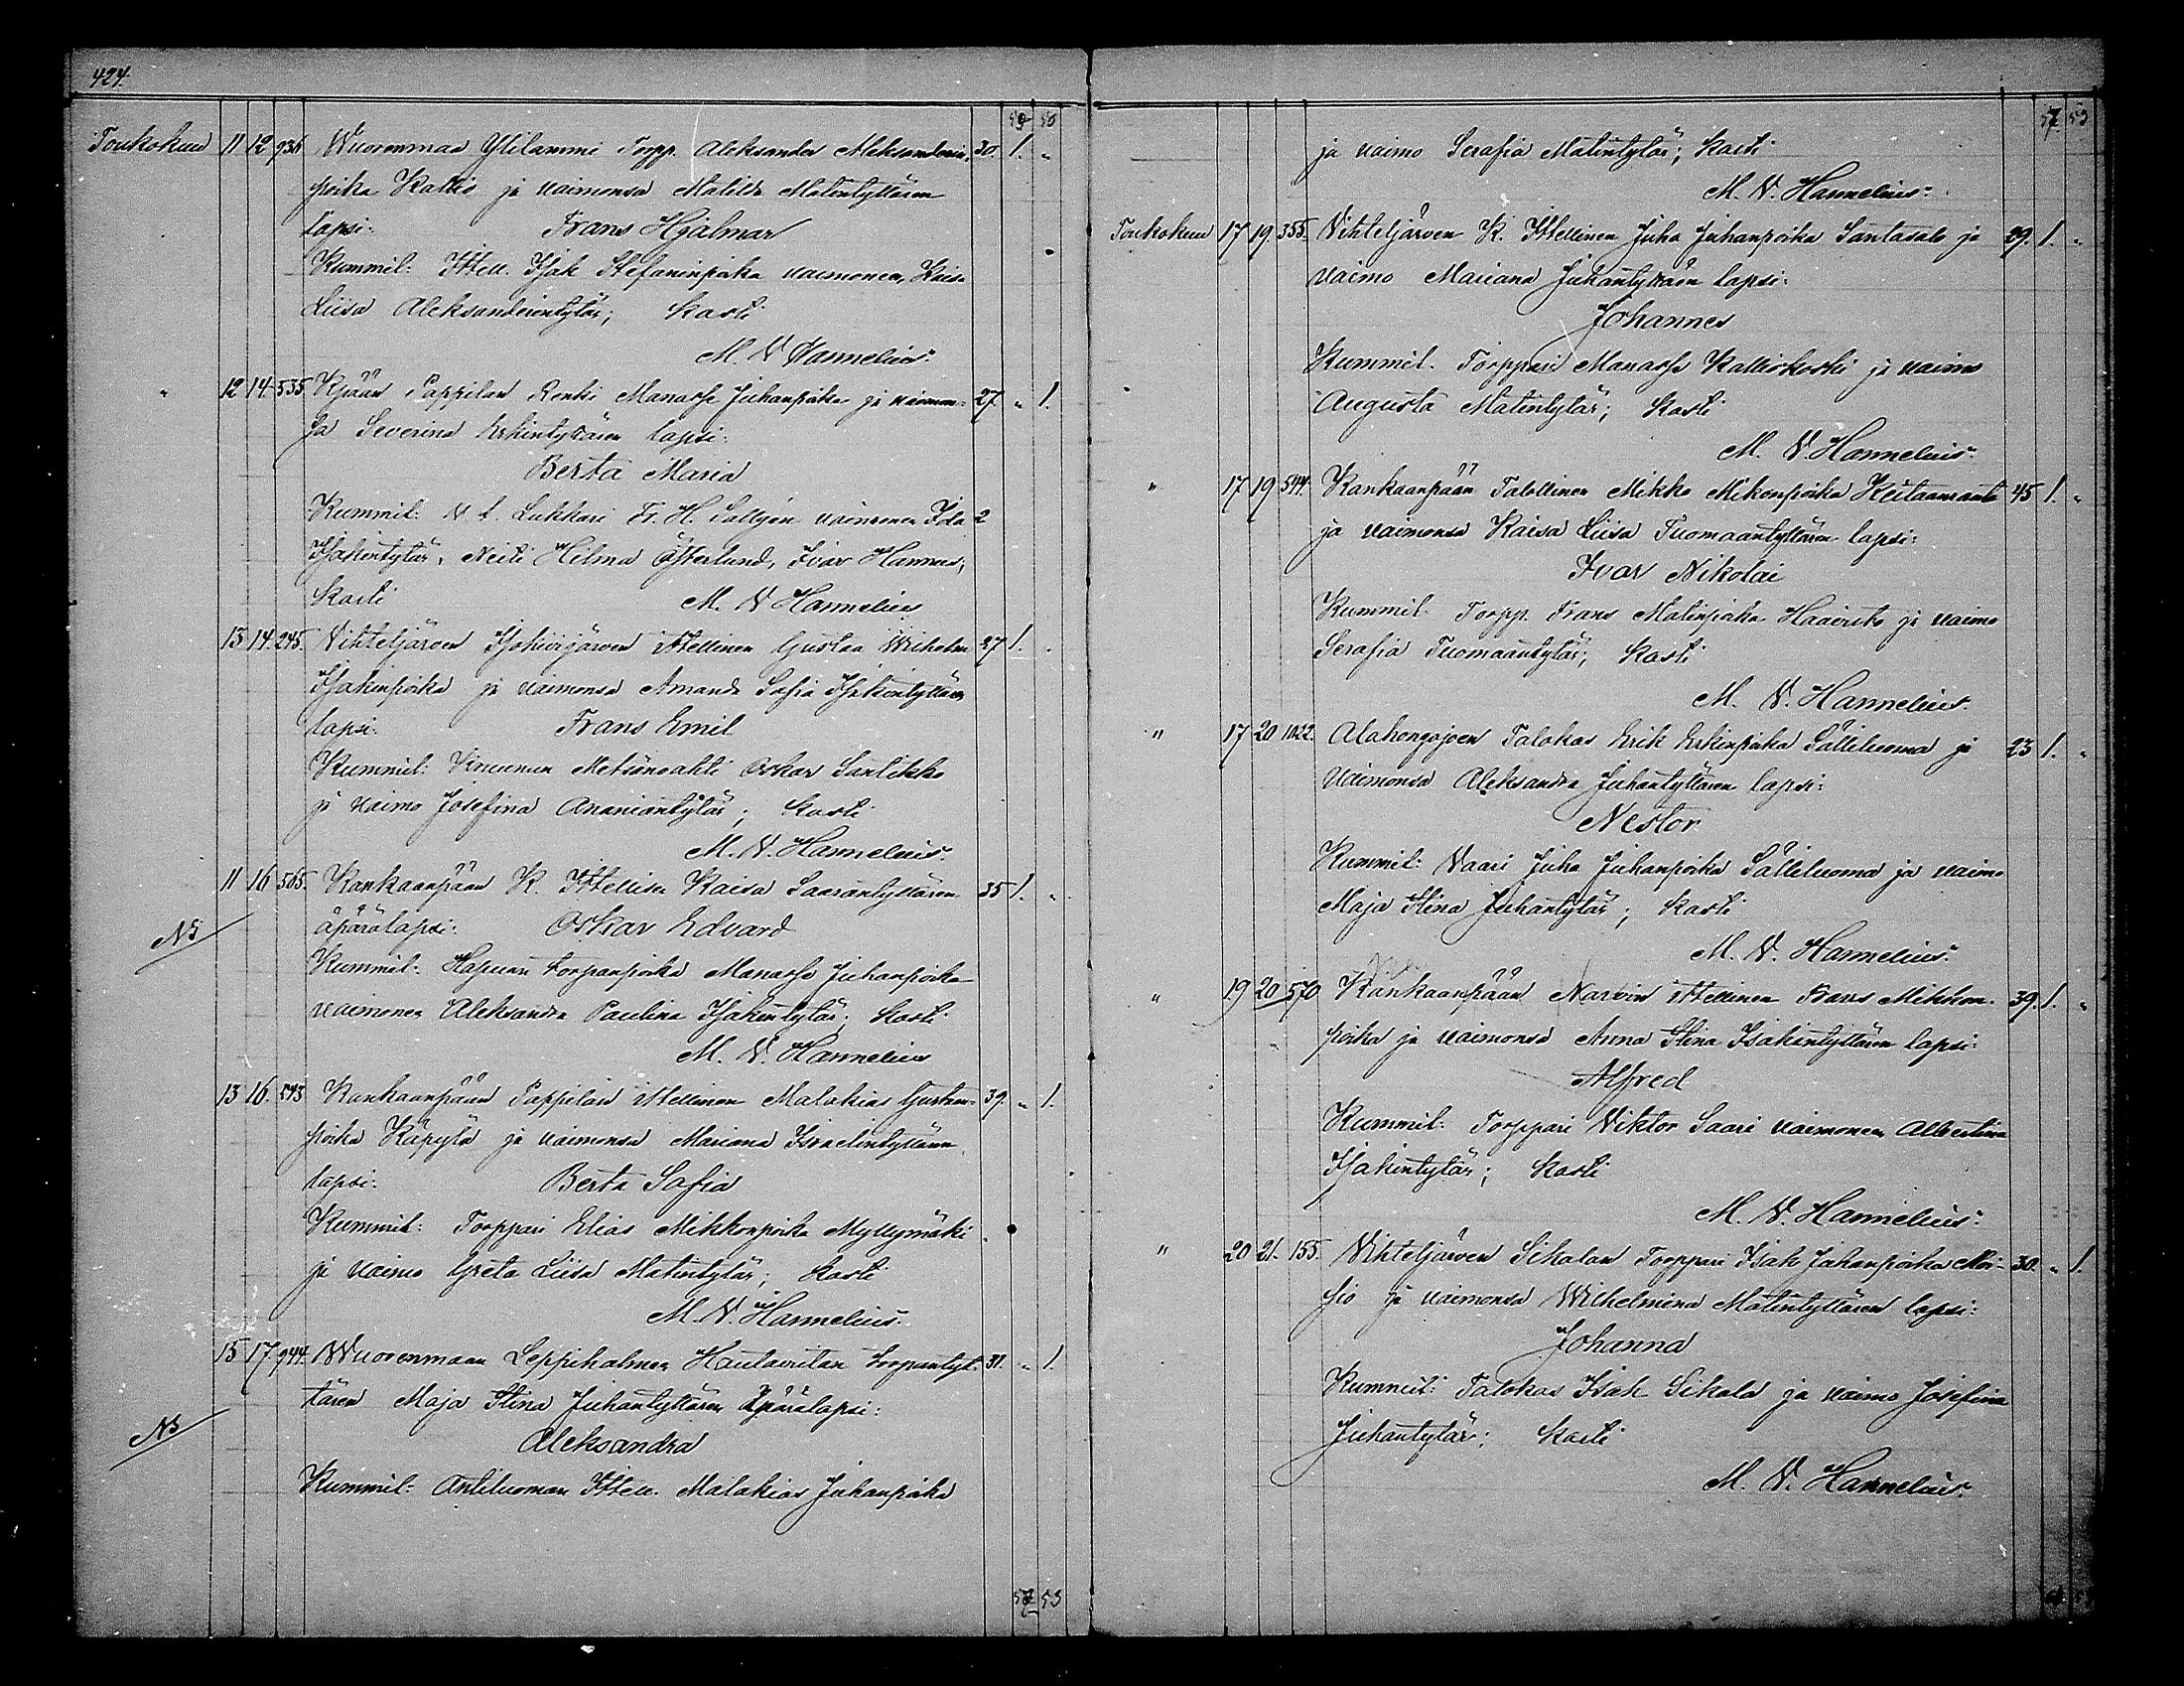 424.
53 50
Toukokuu 11 12 936 Wuorenmaa Ylilammi Torpp. Aleksander Aleksanderin- 30. 1. "
poika Kallio ja vaimonsa Matilda Matintyttären
lapsi: Frans Hjalmar
Kummit: Ittell. Isak Stefaninpoika vaimonen, Kaisa
Liisa Aleksanderintytär; Kasti
M. V. Hannelius.
" 12 14. 535 Kpään Pappilan Renki Manasse Juhanpoika ja vaimon- 27. " 1.
sa Severina Erkintyttären lapsi:
Berta Maria
Kummit: V. t. Lukkari Fr. H. Sallgén vaimonen Ida 2
Isakintytär, Neiti Hilma Österlund, Ivar Hannus;
Kasti M. V. Hannelius
13 14. 245. Vihteljärven Isohiirijärven Ittellinen Gustaa Wilhelm 27 1.
Isakinpoika ja vaimonsa Amanda Sofia Isakintyttären
lapsi: Frans Emil
Kummit: Kruunun Metsänvahti Oskar Santikko
ja vaimo Josefina Ananiantytär; Kasti
M. V. Hannelius.
11 16 565. Kankaanpään K. Ittellisen Kaisa Saarantyttären 35 1. "
NB äpärälapsi: Oskar Edvard
Kummit: Hapuan torpanpoika Manasse Juhanpoika
vaimonen Aleksandra Paulina Isakintytär; Kasti
M. V. Hannelius
13 16. 543 Kankaanpään Pappilan ittellinen Malakias Gustaan- 39. " 1.
poika Käpylä ja vaimonsa Mariana Israelintyttären
lapsi: Berta Sofia
Kummit: Torppari Elias Mikkonpoika Myllymäki
ja vaimo Greta Liisa Matintytär; Kasti
M. V. Hannelius.
15 17. 944. Wuorenmaan Leppihalmen Hautaviitan torpantyt- 31. " 1.
tären Maja Stina Juhantyttären äpärälapsi:
NB Aleksandra
Kummit: Antiluoman Ittell. Malakias Juhanpoika
57 53
57. 53
ja vaimo Serafia Matintytär; Kasti
M. V. Hannelius.
Toukokuu 17 19. 355. Vihteljärven K. Ittellinen Juha Juhanpoika Santasalo ja 29. 1. "
vaimo Mariana Juhantyttären lapsi:
Johannes
Kummit. Torppari Manasse Kalliokoski ja vaimo
Augusta Matintytär; Kasti
M. V. Hannelius.
" 17 19 544. Kankaanpään Talollinen Mikko Mikonpoika Kiitaanranta 45 1. "
ja vaimonsa Kaisa Liisa Tuomaantyttären lapsi:
Ivar Nikolai
Kummit. Torpp. Frans Matinpoika Haavisto ja vaimo
Serafia Tuomaantytär; Kasti
M. V. Hannelius.
" 17 20 1022. Alahongojoen Talokas Erik Erkinpoika Sälliluoma ja 23 1. "
vaimonsa Aleksandra Juhantyttären lapsi:
Nestor
Kummit: Vaari Juha Juhanpoika Sälliluoma ja vaimo
Maja Stina Juhantytär; Kasti
M. V. Hannelius.
" 19 20 570 Kankaanpään Narvin ittellinen Frans Mikkon- 39. 1. "
poika ja vaimonsa Anna Stina Isakintyttären lapsi:
Alfred
Kummit: Torppari Viktor Saari vaimonen Albertina
Isakintytär; Kasti
M. V. Hannelius.
" 20 21. 155. Vihteljärven Sikalan Torppari Isak Juhanpoika 30. " 1.
ja vaimonsa Wilhelmina Matintyttären lapsi:
Johanna
Kummit: Talokas Isak Sikala ja vaimo Josefina
Juhantytär; Kasti
M. V. Hannelius.